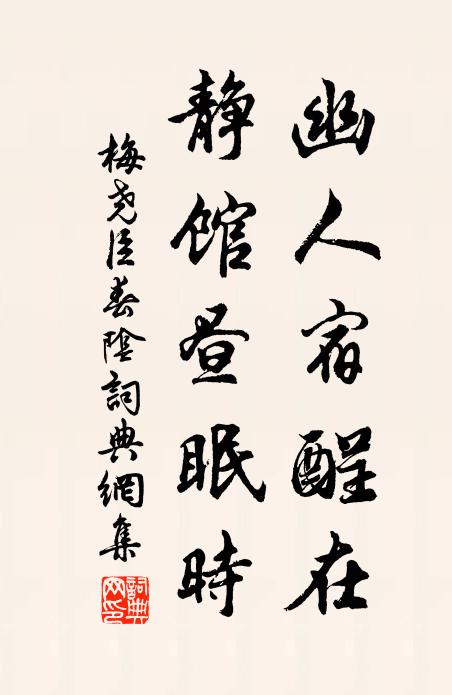 幽人宿醒在
静馆昼眠時
梅尧臣春陰詞典網集
詞典网印